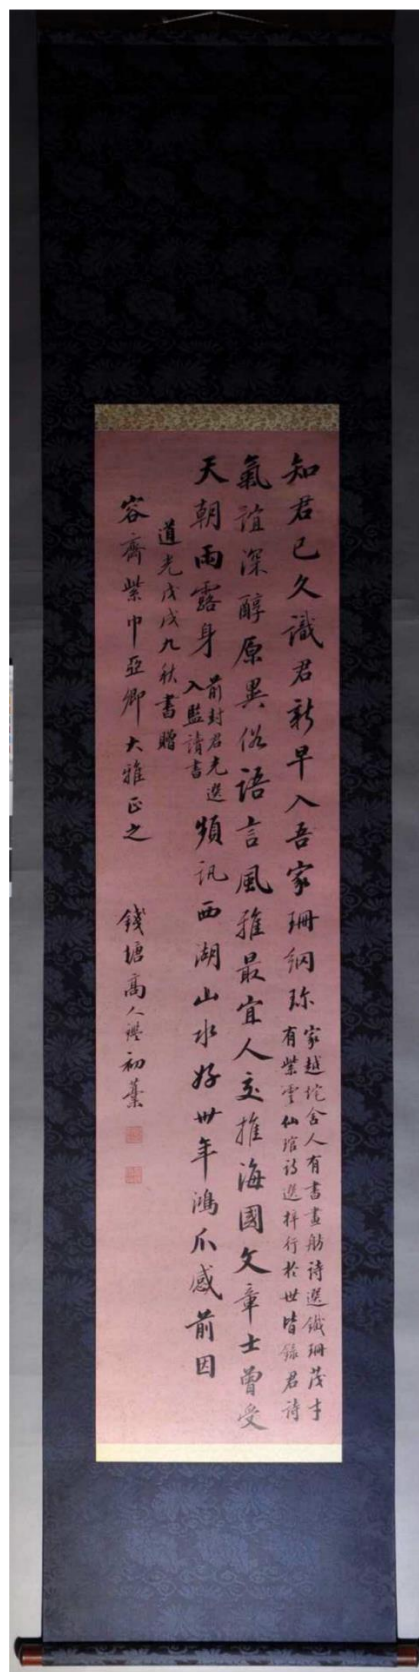 知君已久識君新早入吾家珊網珎
家越垞舍人有書畫舫詩選鐵珊茂才
有紫雲仙琯詩選梓行於世皆錄君詩
氣誼深醇原異俗語言風雅最宜人交推海國文章士曾受
天朝雨露身
前封君先選
入監讀書
頻訊西湖山水好卅年鴻爪感前因
道光戊戌九秋書贈
容齋紫巾亞卿大雅正之
錢塘高人鑑初藁